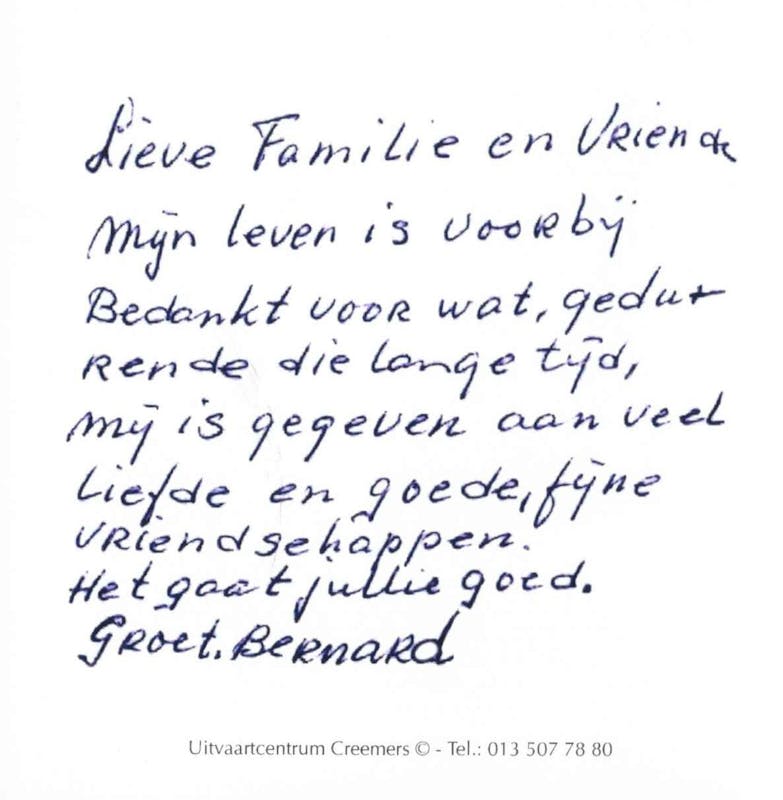 Lieve Familie en Vrienden
Mijn leven is voorbij
Bedankt voor wat, gedu-
rende die lange tijd,
mij is gegeven aan veel
liefde en goede, fijne
vriendschappen.
Het gaat jullie goed.
Groet. Bernard
Uitvaartcentrum Creemers © - Tel.: 013 507 78 80